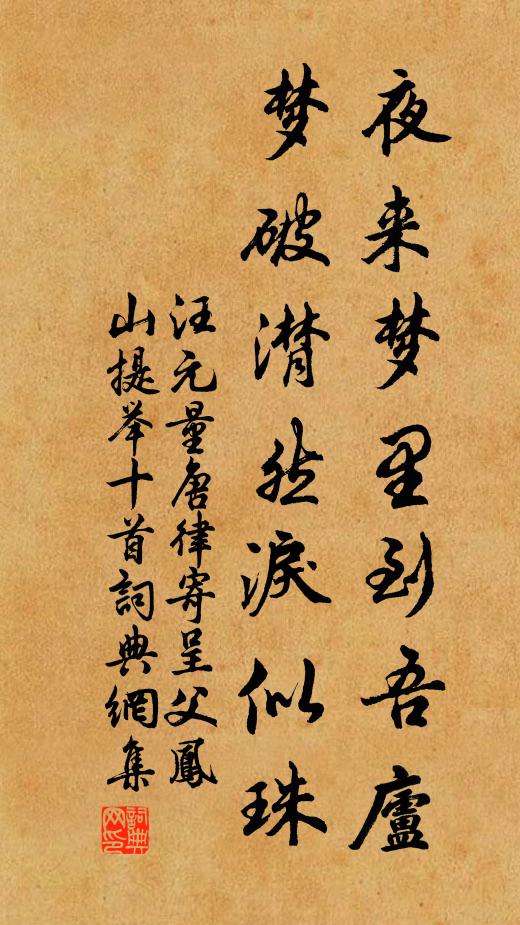 夜来梦里到吾廬
梦破潸然淚似珠
汪元量唐律寄呈父鳳
山提举十首詞典網集
詞典网印